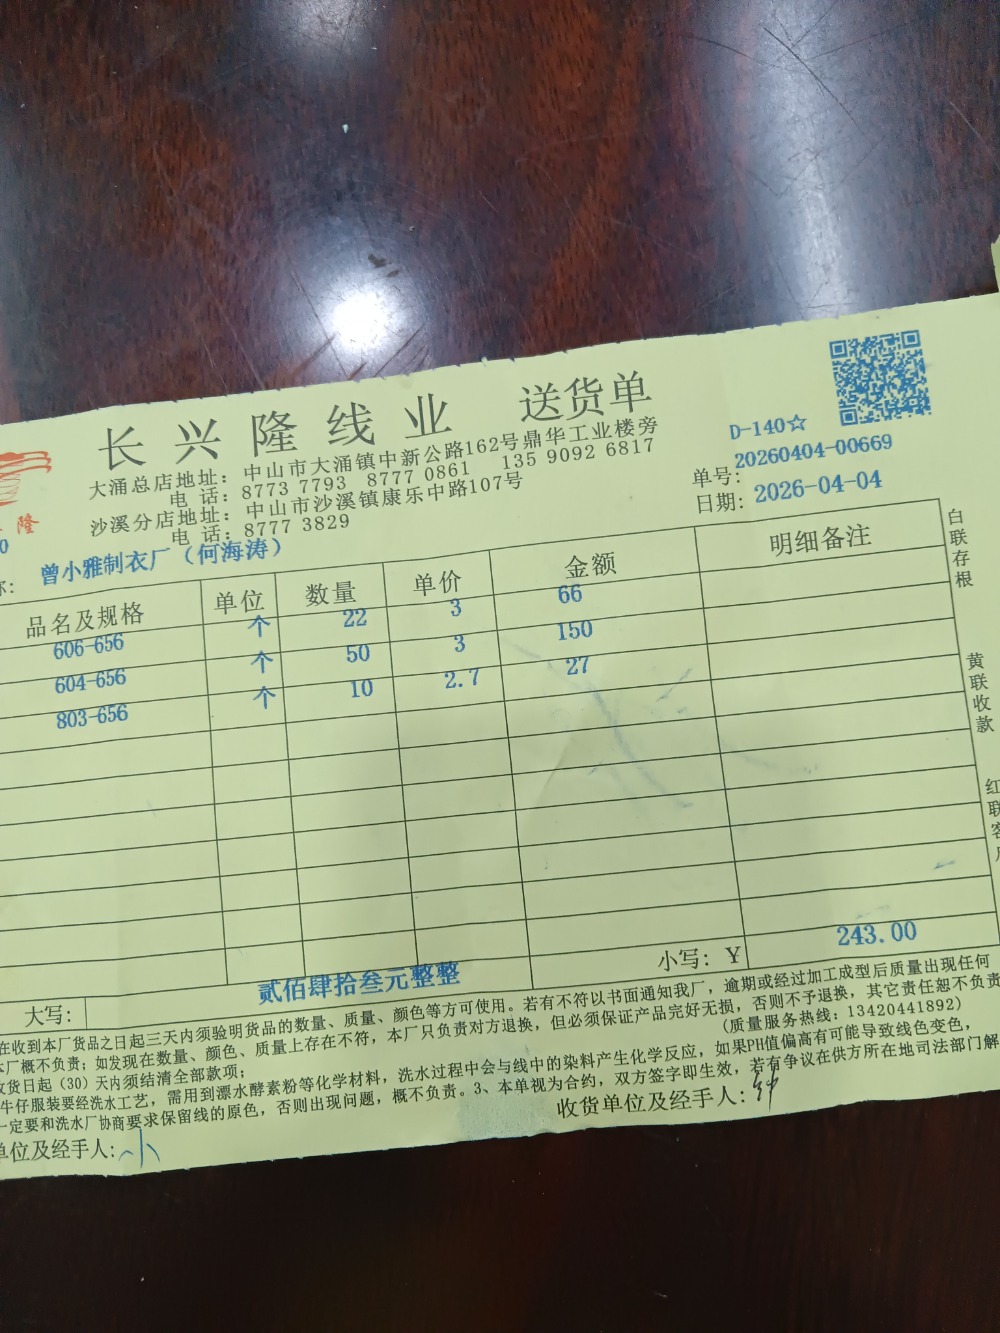 长兴隆线业 送货单
大涌总店地址：中山市大涌镇中新公路162号鼎华工业楼旁
电 话：8773 7793 8777 0861 135 9092 6817
沙溪分店地址：中山市沙溪镇康乐中路107号
电 话：8777 3829
隆
D-140☆
单号：20260404-00669
日期：2026-04-04
0
称：曾小雅制衣厂（何海涛）
品名及规格 单位 数量 单价 金额 明细备注
606-656 个 22 3 66
604-656 个 50 3 150
803-656 个 10 2.7 27
大写：贰佰肆拾叁元整整 小写：￥ 243.00
在收到本厂货品之日起三天内须验明货品的数量、质量、颜色等方可使用。若有不符以书面通知我厂，逾期或经过加工成型后质量出现任何
本厂概不负责；如发现在数量、颜色、质量上存在不符，本厂只负责对方退换，但必须保证产品完好无损，否则不予退换，其它责任恕不负责
收货日起（30）天内须结清全部款项；（质量服务热线：13420441892）
牛仔服装要经洗水工艺，需用到漂水酵素粉等化学材料，洗水过程中会与线中的染料产生化学反应，如果PH值偏高有可能导致线色变色，
一定要和洗水厂协商要求保留线的原色，否则出现问题，概不负责。3、本单视为合约，双方签字即生效，若有争议在供方所在地司法部门解
单位及经手人：小 收货单位及经手人：
白联存根
黄联收款
红联客